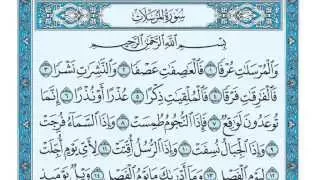 سُورَةُ الْمُرْسَلَاتِ
بِسْمِ اللَّهِ الرَّحْمَٰنِ الرَّحِيمِ
وَالْمُرْسَلَاتِ عُرْفًا ١ فَالْعَاصِفَاتِ عَصْفًا ٢ وَالنَّاشِرَاتِ نَشْرًا ٣
فَالْفَارِقَاتِ فَرْقًا ٤ فَالْمُلْقِيَاتِ ذِكْرًا ٥ عُذْرًا أَوْ نُذْرًا ٦ إِنَّمَا
تُوعَدُونَ لَوَاقِعٌ ٧ فَإِذَا النُّجُومُ طُمِسَتْ ٨ وَإِذَا السَّمَاءُ فُرِجَتْ
٩ وَإِذَا الْجِبَالُ نُسِفَتْ ١٠ وَإِذَا الرُّسُلُ أُقِّتَتْ ١١ لِأَيِّ يَوْمٍ أُجِّلَتْ
١٢ لِيَوْمِ الْفَصْلِ ١٣ وَمَا أَدْرَاكَ مَا يَوْمُ الْفَصْلِ ١٤ وَيْلٌ يَوْمَئِذٍ